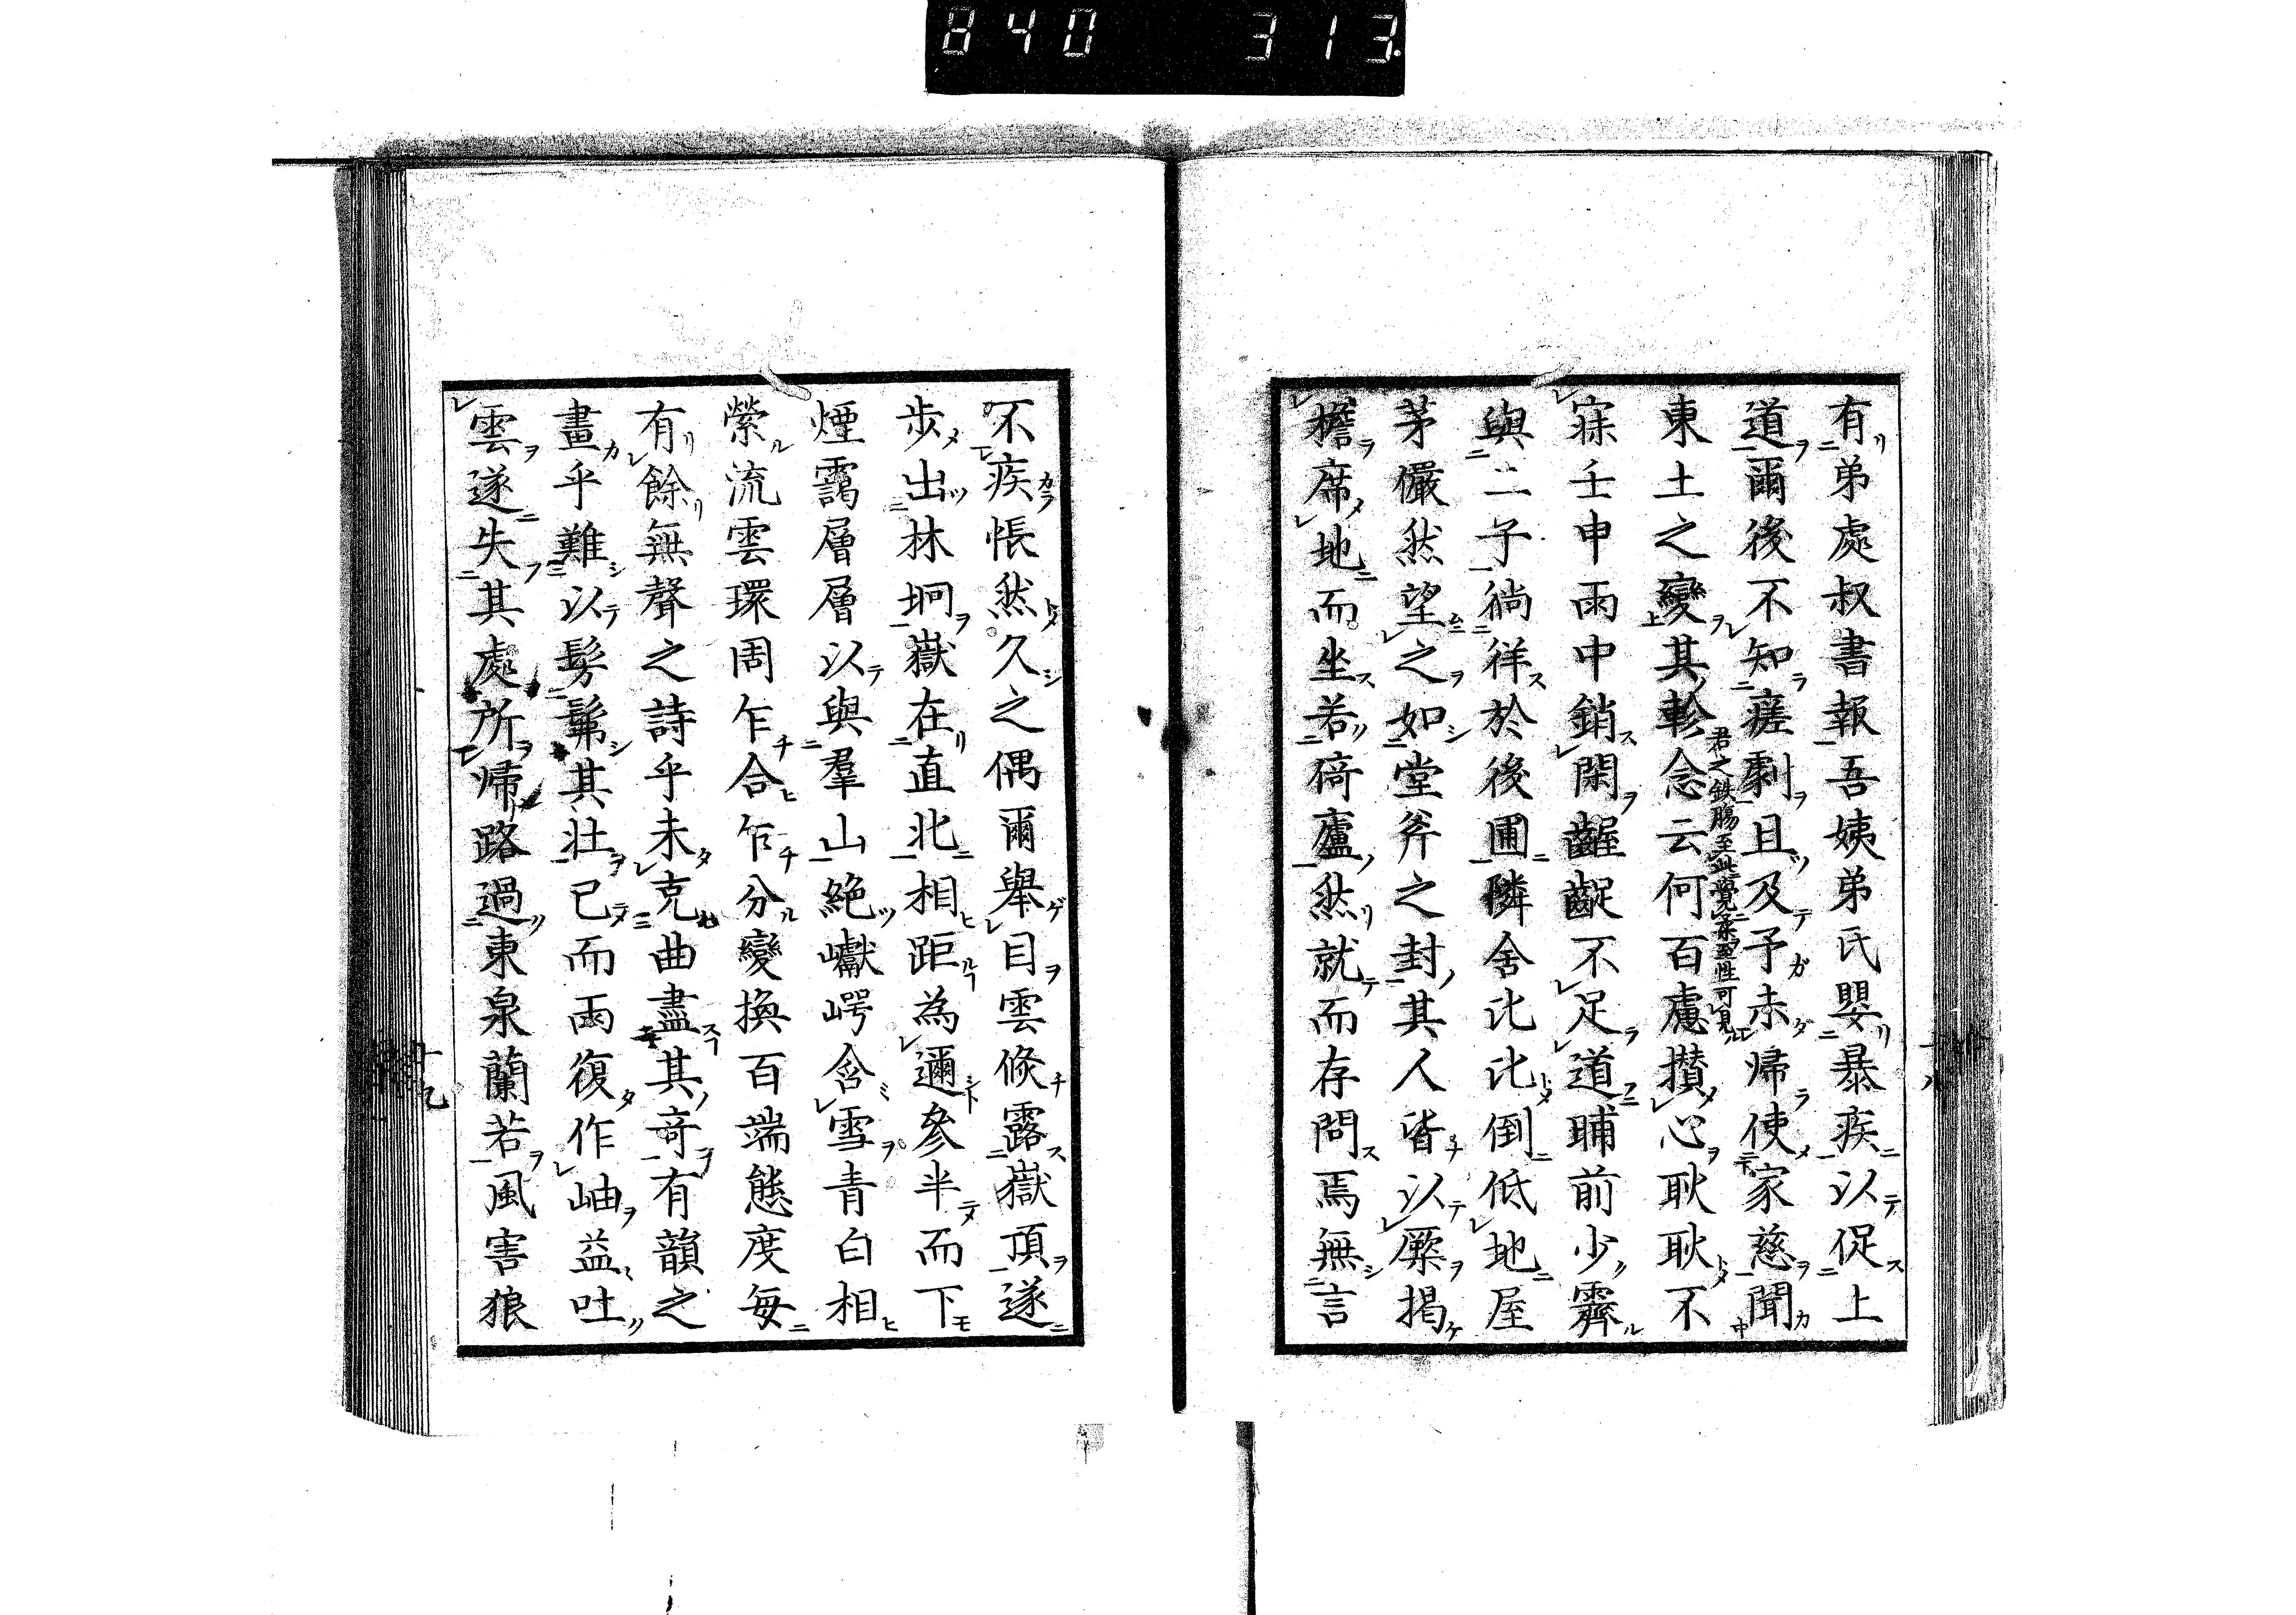 840 313
有弟處叔書報吾姨弟氏嬰暴疾以促上
道爾後不知瘥劇且及予未帰使家慈聞
東土之變其軫念云何百慮攅心耿耿不
君之鉄膓至此覺柔聖性可見
寐壬申雨中銷閑齷齪不足道晡前少霽
與二子徜徉於後圃隣舍比比倒低地屋
茅儼然望之如堂斧之封其人皆以厥揭
擔席地而坐若倚廬然就而存問焉無言
不疾悵然久之偶爾舉目雲倏露嶽頂遂
歩出林坰嶽在直北相距為邇參半而下
煙靄層層以與羣山絶巘崿含雪青白相
縈流雲環周乍合乍分變換百端態度毎
有餘無聲之詩乎未克曲盡其竒有韻之
畫乎難以髣髴其壮已而雨復作岫益吐
雲遂失其處所帰路過東泉蘭若風害狼